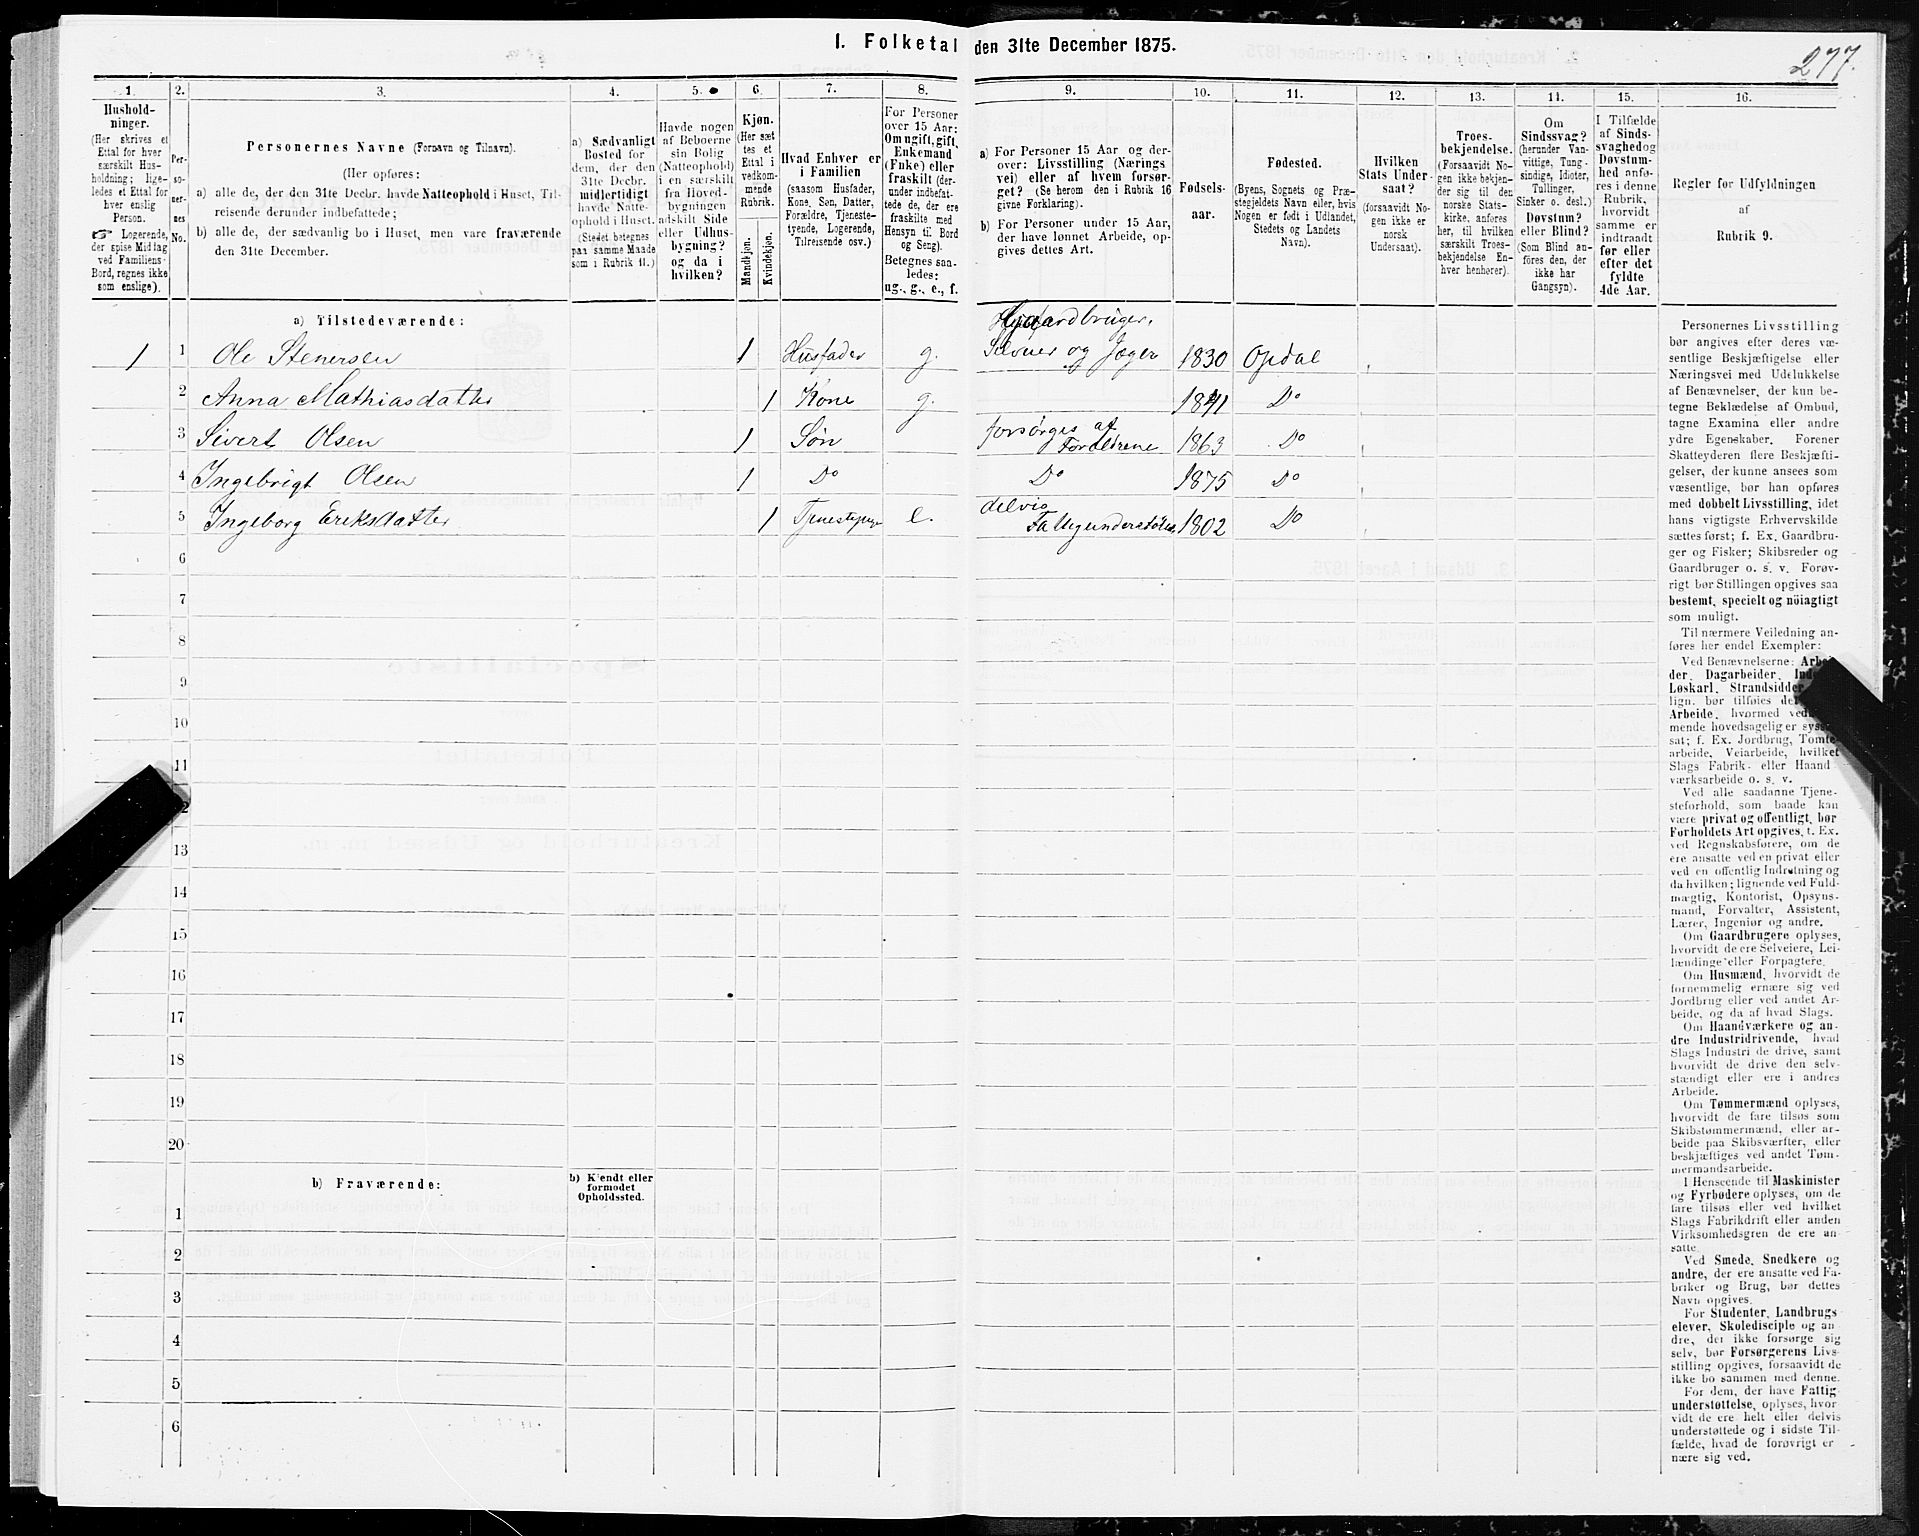 1. Folketal den 31te December 1875.
277.
1.
Hushold-
ninger.
(Her skrives et
Ettal for hver
særskilt Hus-
holdning; lige-
ledes et Ettal for
hver enslig
Person.
☞ Logerende,
der spise Middag
ved Familiens
Bord, regnes ikke
som enslige).
2.
Per-
so-
ner-
nes
No.
3.
Personernes Navne (Fornavn og Tilnavn).
(Her opføres:
a) alle de, der den 31te Decbr. havde Natteophold i Huset, Til-
reisende derunder indbefattede;
b) alle de, der sædvanlig bo i Huset, men vare fraværende
den 31te December.
4.
a) Sædvanligt
Bosted for
dem, der den
31te Decbr.
midlertidigt
havde Natte-
ophold i Huset.
(Stedet betegnes
paa samme Maade
som i Rubrik 11.)
5.
Havde nogen
af Beboerne
sin Bolig
(Natteophold)
i en særskilt
fra Hoved-
bygningen
adskilt Side
eller Udhus-
bygning?
og da i
hvilken?
6.
Kjøn.
(Her sæt
tes et
Ettal i
vedkom-
mende
Rubrik.
Mandkjøn.
Kvindekjøn.
7.
Hvad Enhver er
i Familien
(saasom Husfader,
Kone, Søn, Datter,
Forældre, Tjeneste-
tyende, Logerende,
Tilreisende osv.)
8.
For Personer
over 15 Aar:
Om ugift, gift,
Enkemand
(Enke) eller
fraskilt (der-
under indbefat-
tede de, der ere
fraskilte med
Hensyn til Bord
og Seng).
Betegnes saa-
ledes:
ug., g., e., f.
9.
a) For Personer 15 Aar og der-
over: Livsstilling (Nærings
vei) eller af hvem forsør-
get? (Se herom den i Rubrik 16
givne Forklaring).
b) For Personer under 15 Aar,
der have lønnet Arbeide, op-
gives dettes Art.
10.
Fødsels-
aar.
11.
Fødested.
(Byens, Sognets og Præ-
stegjeldets Navn eller, hvis
Nogen er født i Udlandet,
Stedets og Landets
Navn).
12.
Hvilken
Stats Under-
saat?
(forsaavidt No-
gen ikke er
norsk
Undersaat).
13.
Troes-
bekjendelse.
(Forsaavidt No-
gen ikke bekjen-
der sig til den
norske Stats-
kirke, anføres
her, til hvilken
særskilt Troes-
bekjendelse En-
hver henhører).
14.
Om
Sindssvag?
(herunder Van-
vittige, Tung-
sindige, Idioter,
Tullinger,
Sinker o. desl.)
Døvstum?
eller Blind?
(Som Blind an-
føres den, der
ikke har
Gangsyn).
15.
I Tilfælde
af Sinds-
svaghed og
Døvstum-
hed anfø-
res i denne
Rubrik,
hvorvidt
samme er
indtraadt
før eller
efter det
fyldte
4de Aar.
16.
Regler for Udfyldningen
af
Rubrik 9.
a) Tilstedeværende:
Gaardbruger,
1 1 Ole Stenersen 1 Husfader g. Selveier og Jæger 1830 Opdal
2 Anna Mathiasdatter 1 Kone g. 1841 Do
3 Sivert Olsen 1 Søn forsørges af Forældrene 1863 Do
4 Ingebrigt Olsen 1 Do Do 1875 Do
5 Ingeborg Eriksdatter 1 e. delvis Fattigunderstøttet 1802 Do
6
7
8
9
10
11
2
13
14
15
16
17
18
19
20
b) Fraværende:
b) Kjendt eller
formodet
Opholdssted.
1
2
3
4
5
6
Personernes Livsstilling
bør angives efter deres væ-
sentlige Beskjæftigelse eller
Næringsvei med Udelukkelse
af Benævnelser, der kun be-
tegne Beklædelse af Ombud,
tagne Examina eller andre
ydre Egenskaber. Forener
Skatteyderen flere Beskjæfti-
gelser, der kunne ansees som
væsentlige, bør han opføres
med dobbelt Livsstilling, idet
hans vigtigste Erhvervskilde
sættes først; f. Ex. Gaardbru-
ger og Fisker; Skibsreder og
Gaardbruger o. s. v. Forøv-
rigt bør Stillingen opgives saa
bestemt, specielt og nöiagtigt
som muligt.
Til nærmere Veiledning an-
føres her endel Exempler:
Ved Benævnelserne: Arbei
der, Dagarbeider, Inde
Løskarl, Strandsidder
lign. bør tilføies de
Arbeide, hvormed ved
mende hovedsagelig er syss
sat; f. Ex. Jordbrug, Tomte
arbeide, Veiarbeide, hvilket
Slags Fabrik- eller Haand
værksarbeide o. s. v.
Ved alle saadanne Tjene-
steforhold, som baade kan
være privat og offentligt, bør
Forholdets Art opgives, t. Ex.
ved Regnskabsførere, om de
ere ansatte ved en privat eller
ved en offentlig Indretning og
da hvilken; lignende ved Fuld-
mægtig, Kontorist, Opsyns-
mand, Forvalter, Assistent,
Lærer, Ingeniør og andre.
Om Gaardbrugere oplyses,
hvorvidt de ere Selveiere, Lei-
lændinge eller Forpagtere.
Om Husmænd, hvorvidt de
fornemmelig ernære sig ved
Jordbrug eller ved andet Ar-
beide, og da af hvad Slags.
Om Haandværkere og an-
dre Industridrivende, hvad
Slags Industri de drive, samt
hvorvidt de drive den selv-
stændigt eller ere i andres
Arbeide.
Om Tømmermænd oplyses,
hvorvidt de fare tilsøs som
Skibstømmermænd, eller ar-
beide paa Skibsværfter, eller
beskjæftiges ved andet Tøm-
mermandsarbeide.
I Henseende til Maskinister
og Fyrbødere oplyses, om de
fare tilsøs eller ved hvilket
Slags Fabrikdrift eller anden
Virksomhedsgren de ere an-
satte.
Ved Smede, Snedkere og
andre, der ere ansatte ved Fa-
briker og Brug, bør dettes
Navn opgives.
For Studenter, Landbrugs
elever, Skoledisciple og an-
dre, der ikke forsørge sig
selv, bør Forsørgerens Livs-
stilling opgives, forsaavidt de
ikke bo sammen med denne.
For dem, der have Fattig
understøttelse, oplyses, hvor
vidt de ere helt eller delvis
understøttede og i sidste Til-
fælde, hvad de forøvrigt er
nære sig ved.